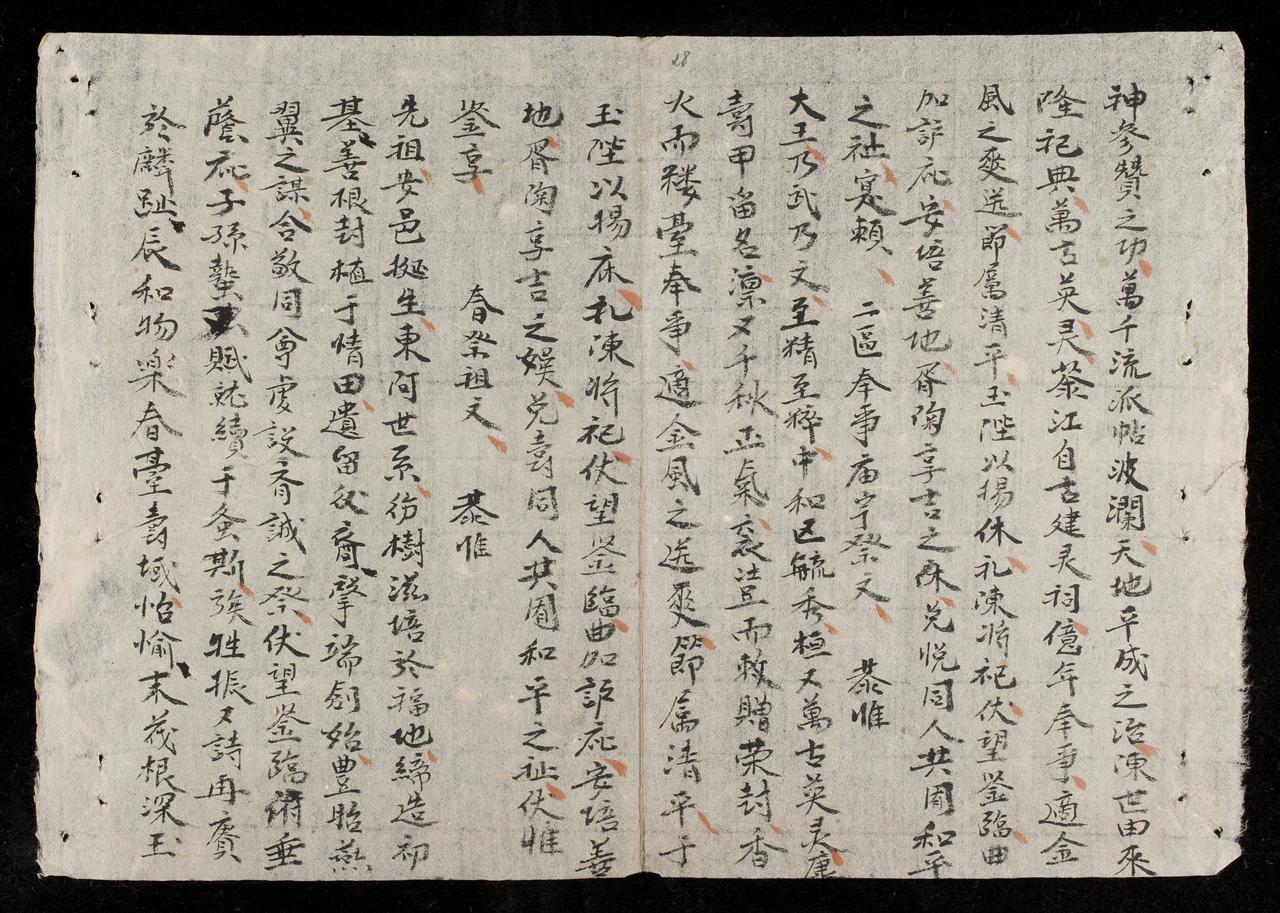 28
神參贊之功萬千流派帖波瀾天地平成之治涷世由來
隆祀典萬古英灵茶江自古建灵祠億年奉事適金
風之爽送節属清平玉陛以揚休礼涷将祀伏望鉴臨曲
加訴庇安培善地胥陶享吉之休兌悦同人共囿和平
之祉寔頼 二區奉事庙宇祭文 恭惟
大王乃武乃文至精至粹中和毓秀極又萬古英灵康
壽甲留名凛又千秋正氣衮豈而敕贈荣封香
火而楼臺奉事適金風之送爽節属清平于
玉陛以揚庥礼涷将祀伏望鉴臨曲加訴庇安培善
地胥陶享吉之娱兌壽同人共囿和平之祉伏惟
鉴享 春祭祖文 恭惟
先祖安邑挺生東阿世系彷樹滋培於福地締造初
基善根封植于情田遺留後裔肇端創始豊貽燕
翼之謀合敬同會虔設斎誠之祭伏望鉴臨俯垂
蔭庇子孫蟄又賦就續于螽斯族牲振又詩再賡
於麟趾辰和物楽春臺壽域怡愉末茂根深玉